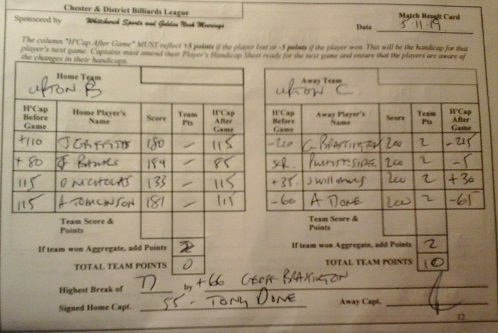 Chester & District Billiards League
Sponsored by Whitchurch Sports and Golden Nook Moorings
Match Result Card
Date 5-11-19
The column "H'Cap After Game" MUST reflect +5 points if the player lost or -5 points if the player won. This will be the handicap for that
player's next game. Captains must amend their Player's Handicap Sheet ready for the next game and ensure that the players are aware of
the changes in their handicaps.
Home Team
UPTON B
H'Cap Before Game Home Player's Name Score Team Pts H'Cap After Game
+110 J GRIFFITHS 180 - 115
+80 BANKS 194 - 85
115 D NICHOLAS 133 - 115
115 A TOMLINSON 181 - 115
Team Score & Points
If team won Aggregate, add Points
TOTAL TEAM POINTS 0
Away Team
UPTON C
H'Cap Before Game Away Player's Name Score Team Pts H'Cap After Game
-210 G BRATTINGTON 200 2 -215
SCR. 200 2 -5
+35 S WILLIAMS 200 2 +30
-60 A DONE 200 2 -65
Team Score & Points
If team won Aggregate, add Points 2
TOTAL TEAM POINTS 10
Highest Break of 77 by +66 GEOFF BRATTINGTON
55 - TONY DONE
Signed Home Capt. Away Capt.
12